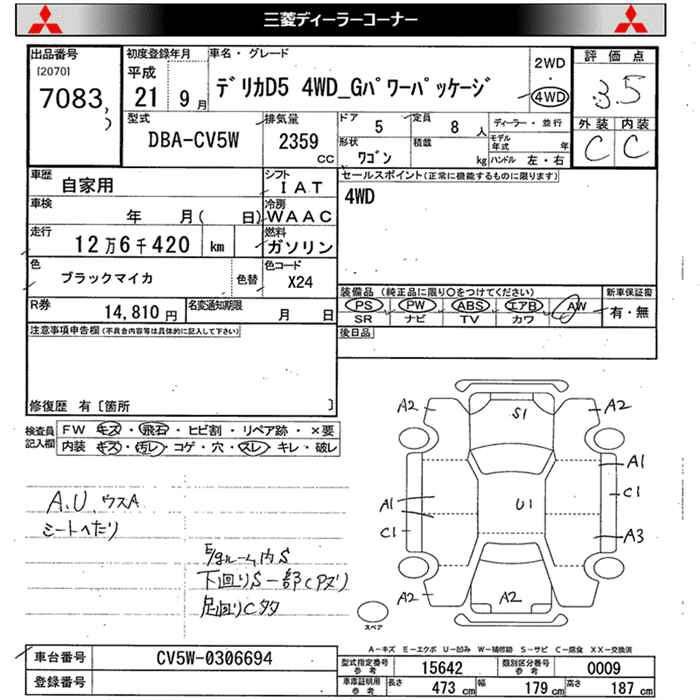 三菱ディーラーコーナー
出品番号 初度登録年月 車名・グレード 評価点
[2070] 平成 2WD
7083 21 9月 デリカD5 4WD_Gパワーパッケージ 4WD 3.5
型式 排気量 ドア 定員 ディーラー・並行 外装 内装
DBA-CV5W 2359 CC 5 8人 モデル年式 年 C C
形状 積載
ワゴン kg ハンドル 左・右
車歴 シフト セールスポイント(正常に機能するものに限ります)
自家用 I A T 4WD
車検 冷房
年 月( 日) W A A C
走行 燃料
12万6千420 km ガソリン
色 色コード
ブラックマイカ 色替 X24
装備品(純正品に限り○をつけてください) 新車保証書
R券 名変通知期限 PS PW ABS エアB AW 有・無
14,810円 月 日 SR ナビ TV カワ
注意事項申告欄(不具合内容等は具体的に記入して下さい) 後日品
修復歴 有〔箇所 〕
検査員記入欄 FW キズ・飛石・ヒビ割・リペア跡・×要
内装 キズ・汚レ・コゲ・穴・スレ・キレ・破レ
A2 S1 A2
A1
A1 U1 C1
C1 A3
A2 A2
A.U.ウスA
シートヘたり
E/gルーム内S
下回りS一部C(Pズリ)
足回りCタタ
スペア
A-キズ E-エクボ U-凹み W-補修跡 S-サビ C-腐食 XX-交換済
車台番号 CV5W-0306694 型式指定番号 参考 15642 類別区分番号 参考 0009
登録番号 車庫証明用 参考 長さ 473 cm 幅 179 cm 高さ 187 cm